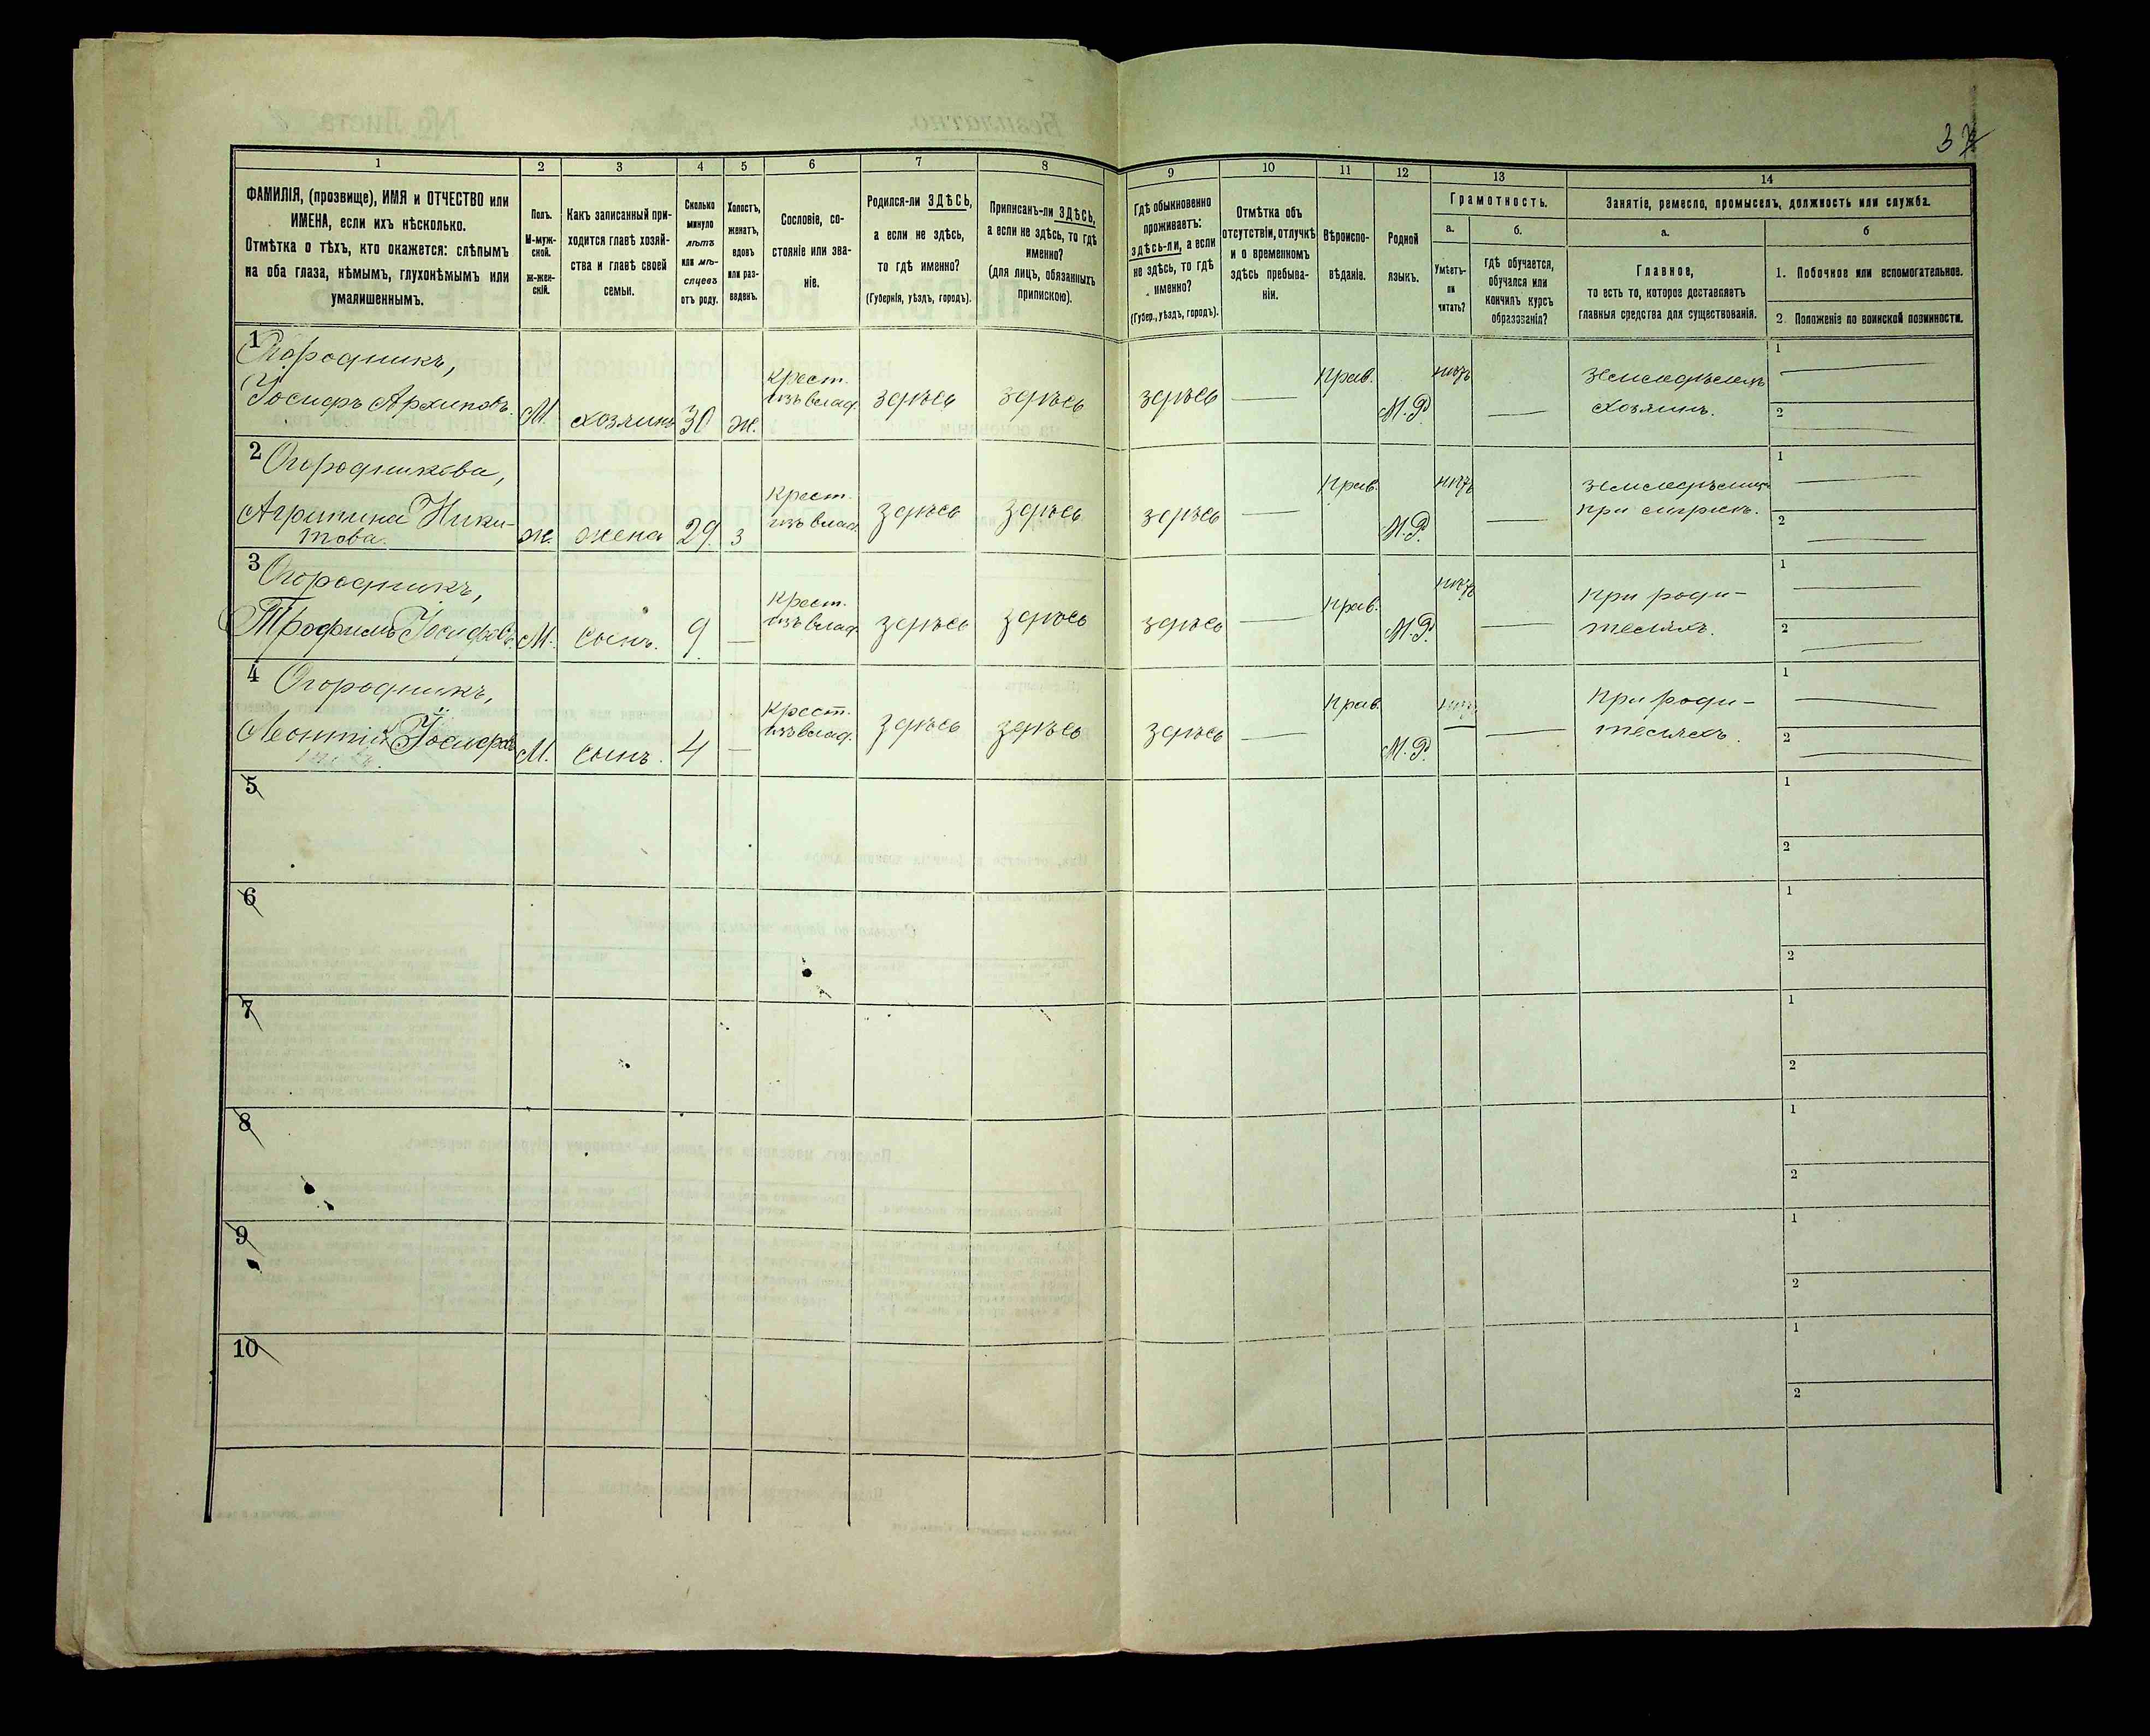 37
1 2 3 4 5 6 7 8 9 10 11 12 13 14
ФАМИЛІЯ, (прозвище), ИМЯ и ОТЧЕСТВО или
ИМЕНА, если ихъ нѣсколько.
Отмѣтка о тѣхъ, кто окажется: слѣпымъ
на оба глаза, нѣмымъ, глухонѣмымъ или
умалишеннымъ.
Полъ.
М-муж-
ской.
ж-жен-
скій.
Какъ записанный при-
ходится главѣ хозяй-
ства и главѣ своей
семьи.
Сколько
минуло
лѣтъ
или мѣ-
сяцевъ
отъ роду.
Холостъ,
женатъ,
вдовъ
или раз-
веденъ.
Сословіе, со-
стояніе или зва-
ніе.
Родился-ли ЗДѢСЬ,
а если не здѣсь,
то гдѣ именно?
(Губернія, уѣздъ, городъ).
Приписанъ-ли ЗДѢСЬ,
а если не здѣсь, то гдѣ
именно?
(для лицъ, обязанныхъ
припискою).
Гдѣ обыкновенно
проживаетъ:
здѣсь-ли, а если
не здѣсь, то гдѣ
именно?
(Губер., уѣздъ, городъ).
Отмѣтка объ
отсутствіи, отлучкѣ
и о временномъ
здѣсь пребыва-
ніи.
Вѣроиспо-
вѣданіе.
Родной
языкъ.
Грамотность.
а.
Умѣетъ-
ли
читать?
б.
гдѣ обучается,
обучался или
кончилъ курсъ
образованія?
Занятіе, ремесло, промыселъ, должность или служба.
а.
Главное,
то есть то, которое доставляетъ
главныя средства для существованія.
б
1. Побочное или вспомогательное.
2. Положеніе по воинской повинности.
1
Огородникъ,
Іосифъ Архиповъ. М. хозяинъ 30 ж.
Крест.
изъ влад. здѣсь здѣсь здѣсь — Прав. М.Р. нѣтъ —
земледѣлецъ
хозяинъ.
1 —
2 —
2 Огородникова,
Агрипина Ники-
това. ж. жена 29. з
Крест.
изъ влад. здѣсь здѣсь здѣсь — Прав. М.Р. нѣтъ —
1 —
2 —
3 Огородникъ,
Трофимъ Іосифовъ. М. сынъ. 9. —
Крест.
изъ влад. здѣсь здѣсь здѣсь — Прав. М.Р. нѣтъ —
При роди-
теляхъ.
1 —
2 —
4 Огородникъ,
Леонтій Іосифовъ М. сынъ. 4 —
Крест.
изъ влад. здѣсь здѣсь здѣсь — Прав. М.Р. —
При роди-
теляхъ.
1 —
2 —
5
1
2
6
1
2
7
1
2
8
1
2
9
1
2
10
1
2